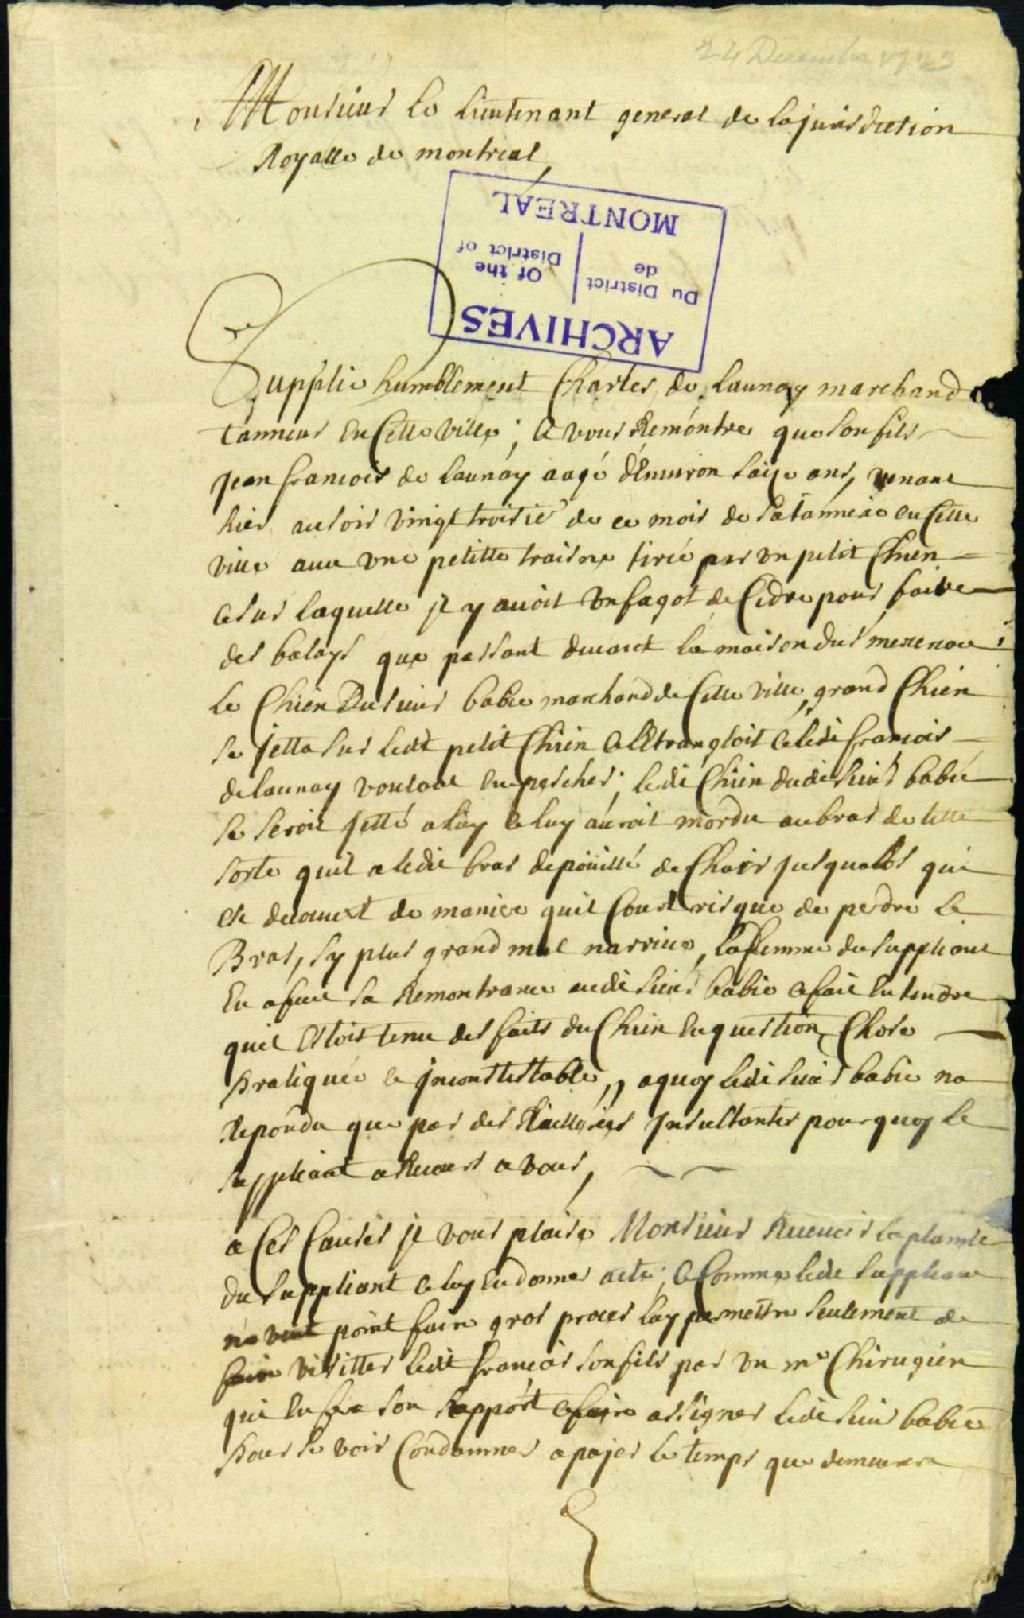 24 Decembre 1723
Monsieur le lieutenant general de la jurisdiction
Royalle de montreal,
MONTREAL
Of the District of
Du District de
ARCHIVES
Supplie humblement Charles de launay marchand
tanneur En Cette ville; Et vous Remontre que son fils
jean francois de launay aagé d'Environ saize ans, venant
hier au soir vingt troisie de ce mois de sa tannerie en Cette
ville avec une petitte traisne tirée par un petit Chien
et sur laquelle il y avoit un fagot de Cedre pour faire
des balays que passant devant la maison du s
le Chien Du sieur babie marchand de Cette ville, grand Chien
se jetta sur ledit petit Chien Et l'Etrangloit Et ledit francois
delaunay voulant Empescher; ledit Chien dudit sieur babie
se seroit jetté a luy Et luy auroit mordu au bras de telle
sorte quil a ledit bras depoüillé de Chair jusqualos qui
est decouvert de maniere quil Court risque de perdre le
Bras, sy plus grand mal narrive, la femme du suppliant
En a faict sa Remontrance audit sieur babie Et faict Entendre
quil Estoit tenu des faits du Chien En question, Chose
Pratiquée Et jncontestable,, a quoy ledit sieur babie na
Repondu que par des Railleries jnsultantes pourquoy le
suppliant a Recours a vous,
a Ces Causes jl vous plaise Monsieur Recevoir la plainte
du suppliant Et luy En donner acte; Et Comme ledit suppliant
ne veut point faire gros proces luy permettre seulement de
faire visitter ledit françois son fils par un me Chirugien
qui En fera son Rapport Et faire assigner ledit sieur babie
Pour se voir Condamner a payer le temps que demeurera